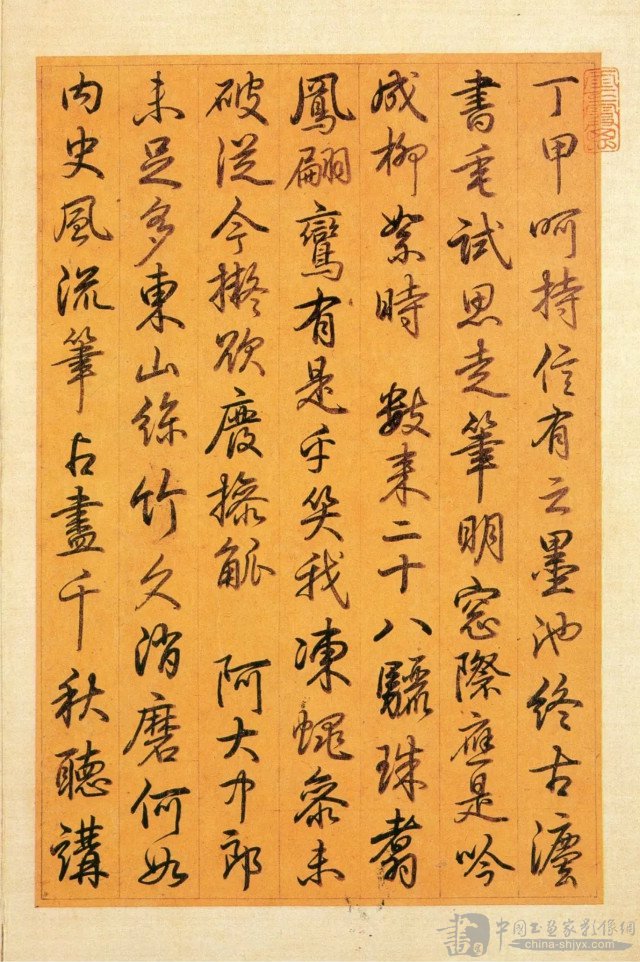 丁甲呵持信有之墨池終古瀍
書重試思走筆明窗際應是吟
成柳絮時　數來二十八驪珠翥
鳳翩鸞有是乎笑我凍蠅參未
破從今擬欲廢操觚　阿大中郎
未足多東山絲竹久消磨何如
內史風流筆占盡千秋聽講
中國書畫家影像網
china-shjyx.com